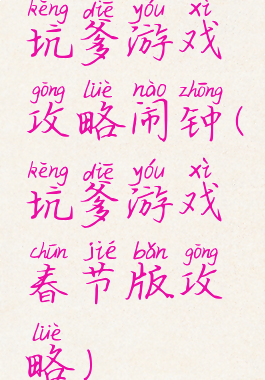 kēng diē yóu xì
坑爹游戏
gōng lüè nào zhōng
攻略闹钟(
kēng diē yóu xì
坑爹游戏
chūn jié bǎn gōng
春节版攻
lüè
略)